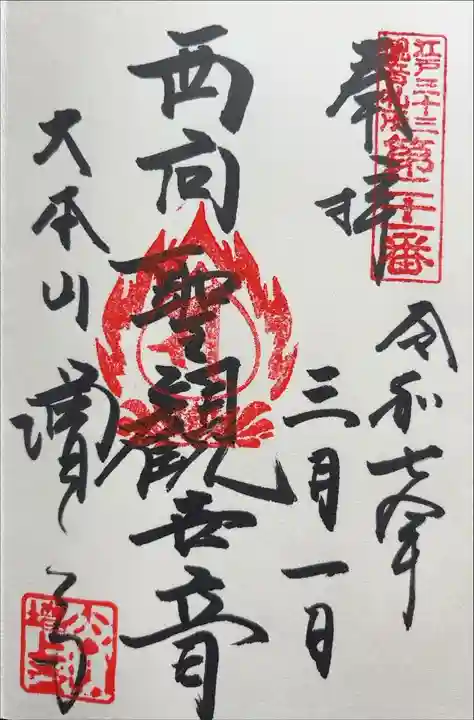 江戸三十三
観音札所
第二十一番
奉拝
令和七年
三月一日
西向聖観世音
大本山増上寺